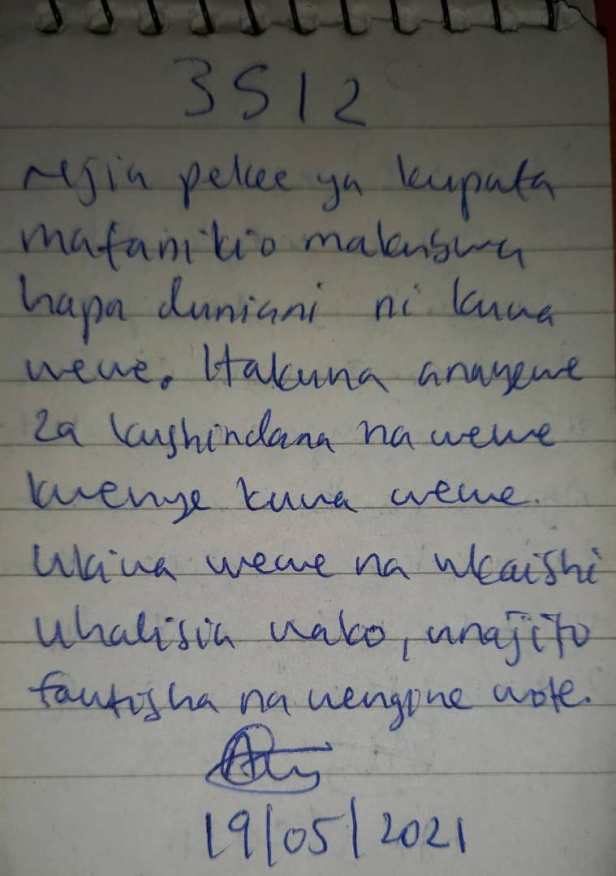 3512
Njia pekee ya kupata
mafanikio makubwa
hapa duniani ni kuwa
wewe. Hakuna anayewe
za kushindana na wewe
kwenye kuwa wewe.
Ukiwa wewe na ukaishi
uhalisia wako, unajito
fautisha na wengine wote.
19/05/2021